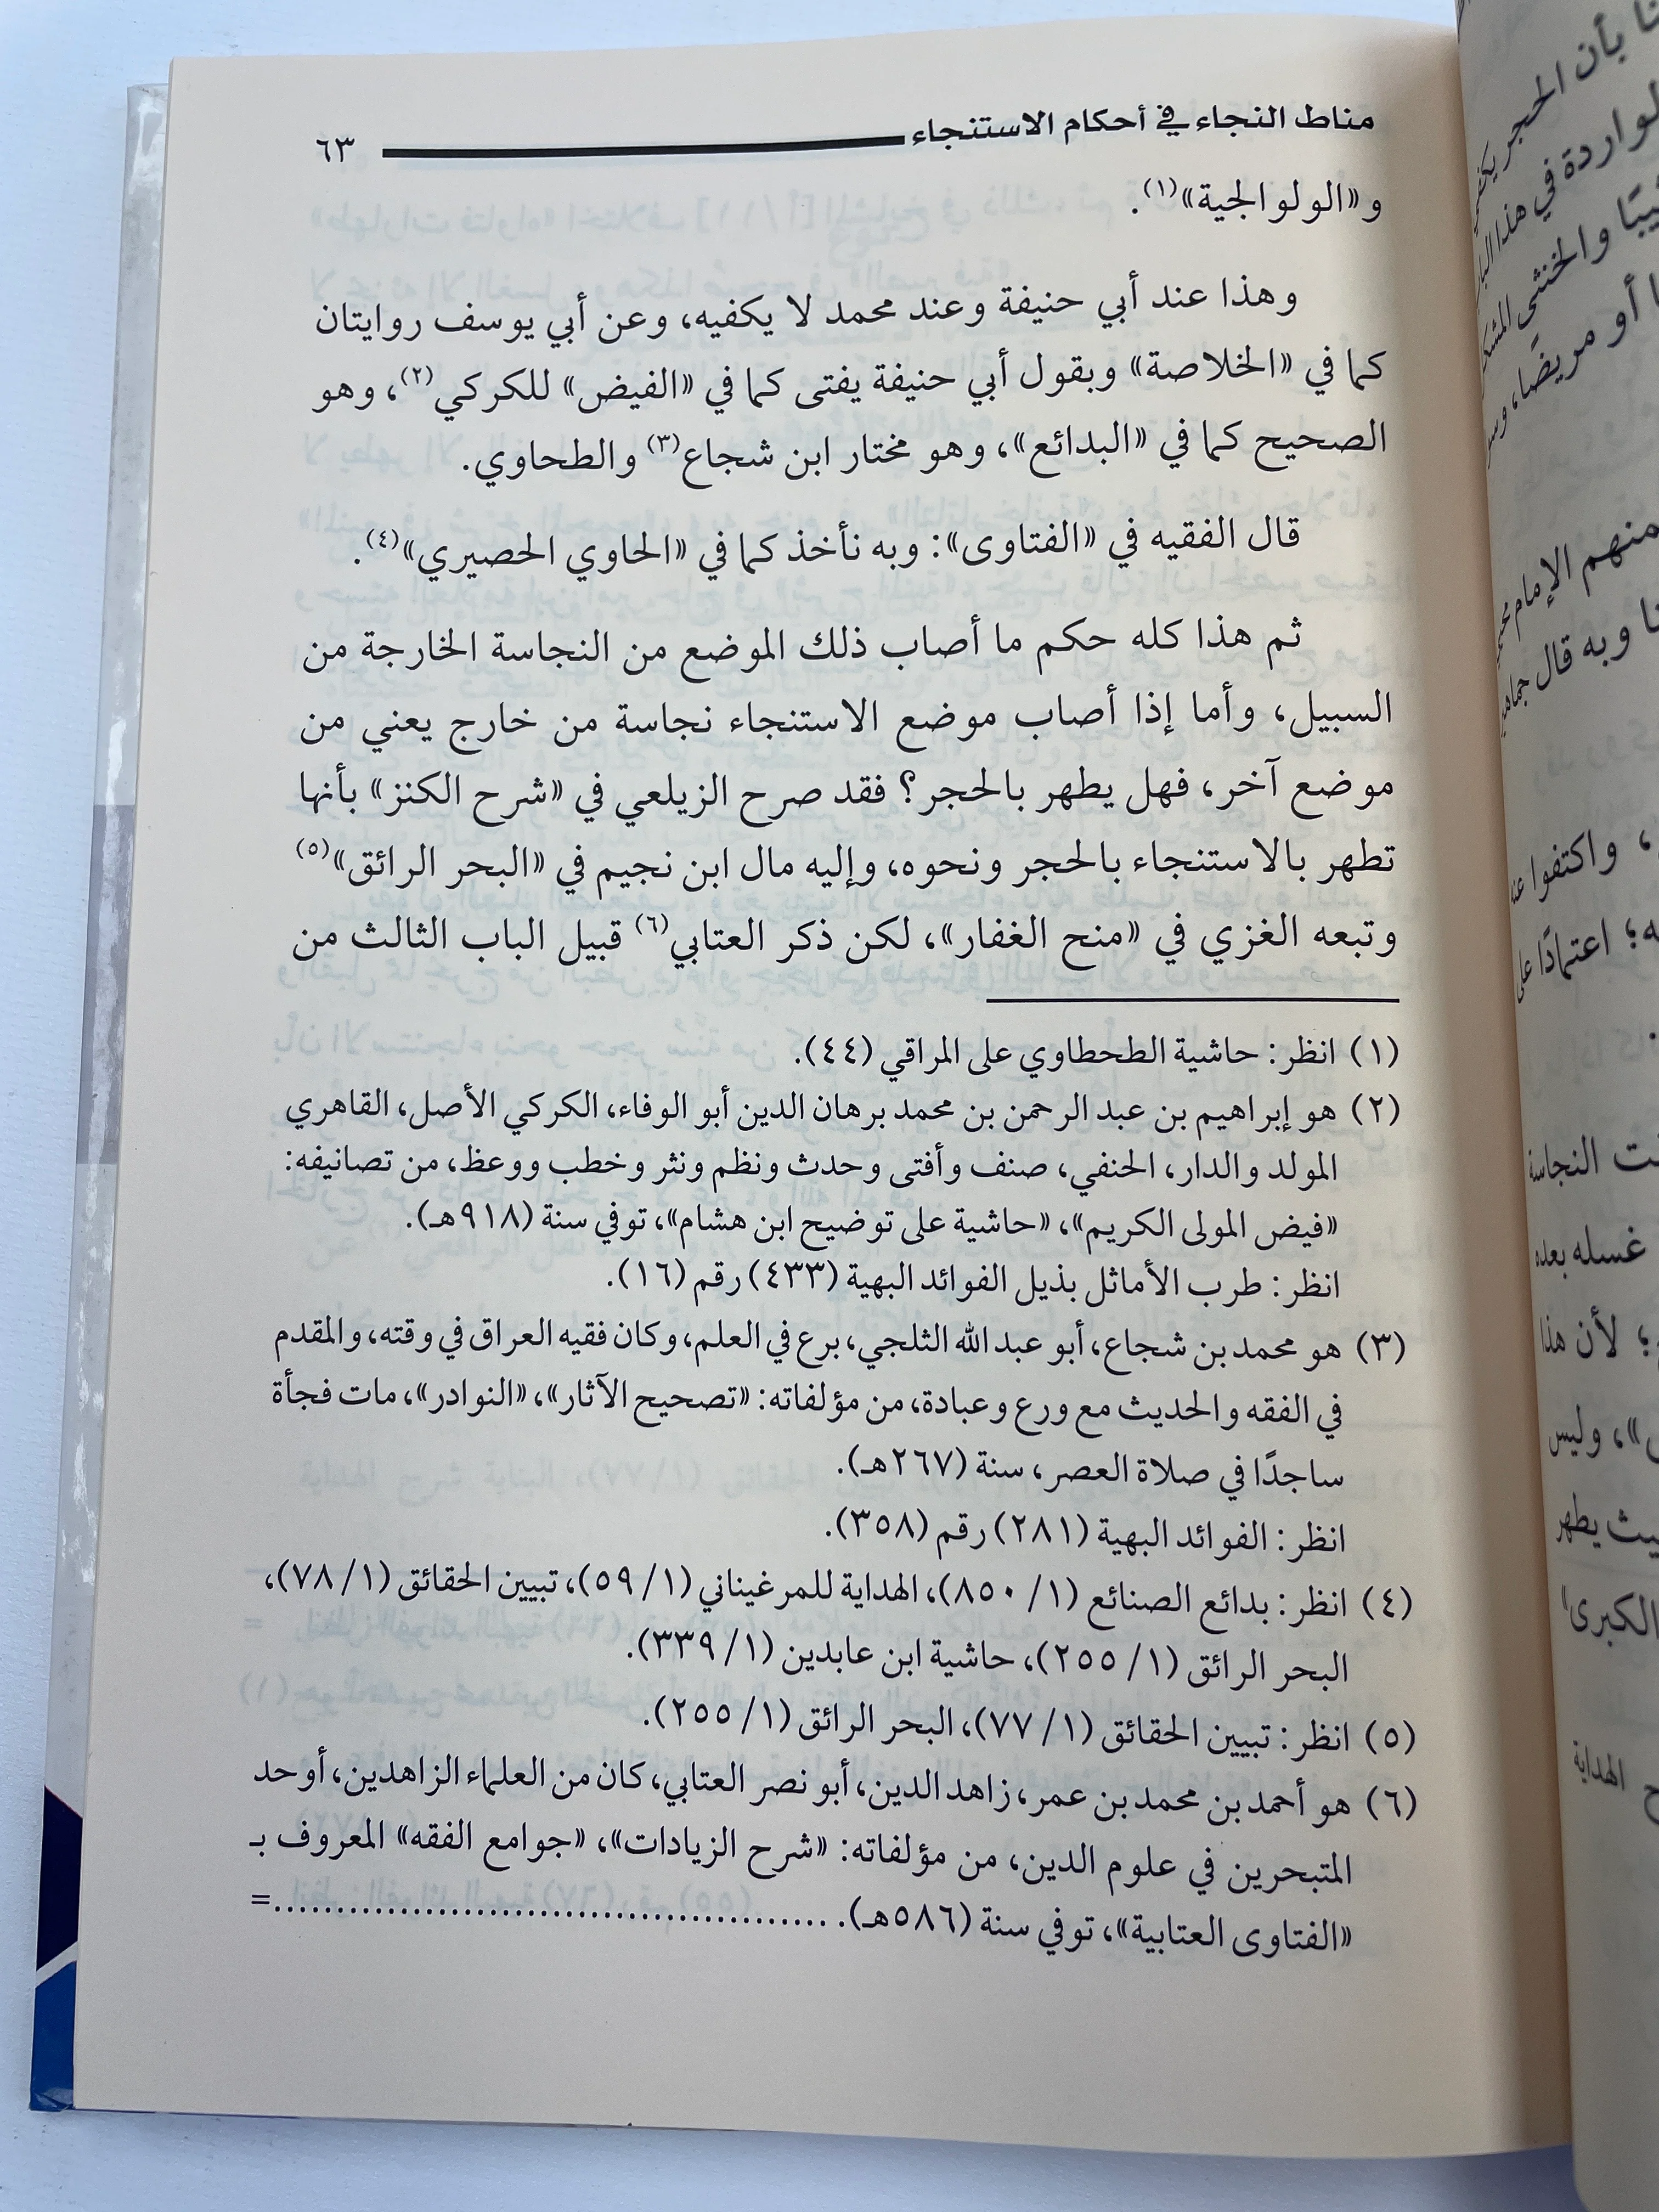 مناط النجاء في أحكام الاستنجاء ٦٣
و«الولوالجية»(١).
وهذا عند أبي حنيفة وعند محمد لا يكفيه، وعن أبي يوسف روايتان
كما في «الخلاصة» وبقول أبي حنيفة يفتى كما في «الفيض» للكركي(٢)، وهو
الصحيح كما في «البدائع»، وهو مختار ابن شجاع(٣) والطحاوي.
قال الفقيه في «الفتاوى»: وبه نأخذ كما في «الحاوي الحصيري»(٤).
ثم هذا كله حكم ما أصاب ذلك الموضع من النجاسة الخارجة من
السبيل، وأما إذا أصاب موضع الاستنجاء نجاسة من خارج يعني من
موضع آخر، فهل يطهر بالحجر؟ فقد صرح الزيلعي في «شرح الكنز» بأنها
تطهر بالاستنجاء بالحجر ونحوه، وإليه مال ابن نجيم في «البحر الرائق»(٥)
وتبعه الغزي في «منح الغفار»، لكن ذكر العتابي(٦) قبيل الباب الثالث من
(١) انظر: حاشية الطحطاوي على المراقي (٤٤).
(٢) هو إبراهيم بن عبد الرحمن بن محمد برهان الدين أبو الوفاء، الكركي الأصل، القاهري
المولد والدار، الحنفي، صنف وأفتى وحدث ونظم ونثر وخطب ووعظ، من تصانيفه:
«فيض المولى الكريم»، «حاشية على توضيح ابن هشام»، توفي سنة (٩١٨هـ).
انظر: طرب الأماثل بذيل الفوائد البهية (٤٣٣) رقم (١٦).
(٣) هو محمد بن شجاع، أبو عبد الله الثلجي، برع في العلم، وكان فقيه العراق في وقته، والمقدم
في الفقه والحديث مع ورع وعبادة، من مؤلفاته: «تصحيح الآثار»، «النوادر»، مات فجأة
ساجدًا في صلاة العصر، سنة (٢٦٧هـ).
انظر: الفوائد البهية (٢٨١) رقم (٣٥٨).
(٤) انظر: بدائع الصنائع (١/ ٨٥٠)، الهداية للمرغيناني (١/ ٥٩)، تبيين الحقائق (١/ ٧٨)،
البحر الرائق (١/ ٢٥٥)، حاشية ابن عابدين (١/ ٣٣٩).
(٥) انظر: تبيين الحقائق (١/ ٧٧)، البحر الرائق (١/ ٢٥٥).
(٦) هو أحمد بن محمد بن عمر، زاهد الدين، أبو نصر العتابي، كان من العلماء الزاهدين، أوحد
المتبحرين في علوم الدين، من مؤلفاته: «شرح الزيادات»، «جوامع الفقه» المعروف بـ
«الفتاوى العتابية»، توفي سنة (٥٨٦هـ). ............................................=
بأن الحجر
الواردة في هذا
والخنثى
أو مريضًا،
منهم الإمام
وبه قال
، واكتفوا
؛ اعتمادًا
النجاسة
غسله بعده
؛ لأن هذا
»، وليس
يطهر
الكبرى
الهداية